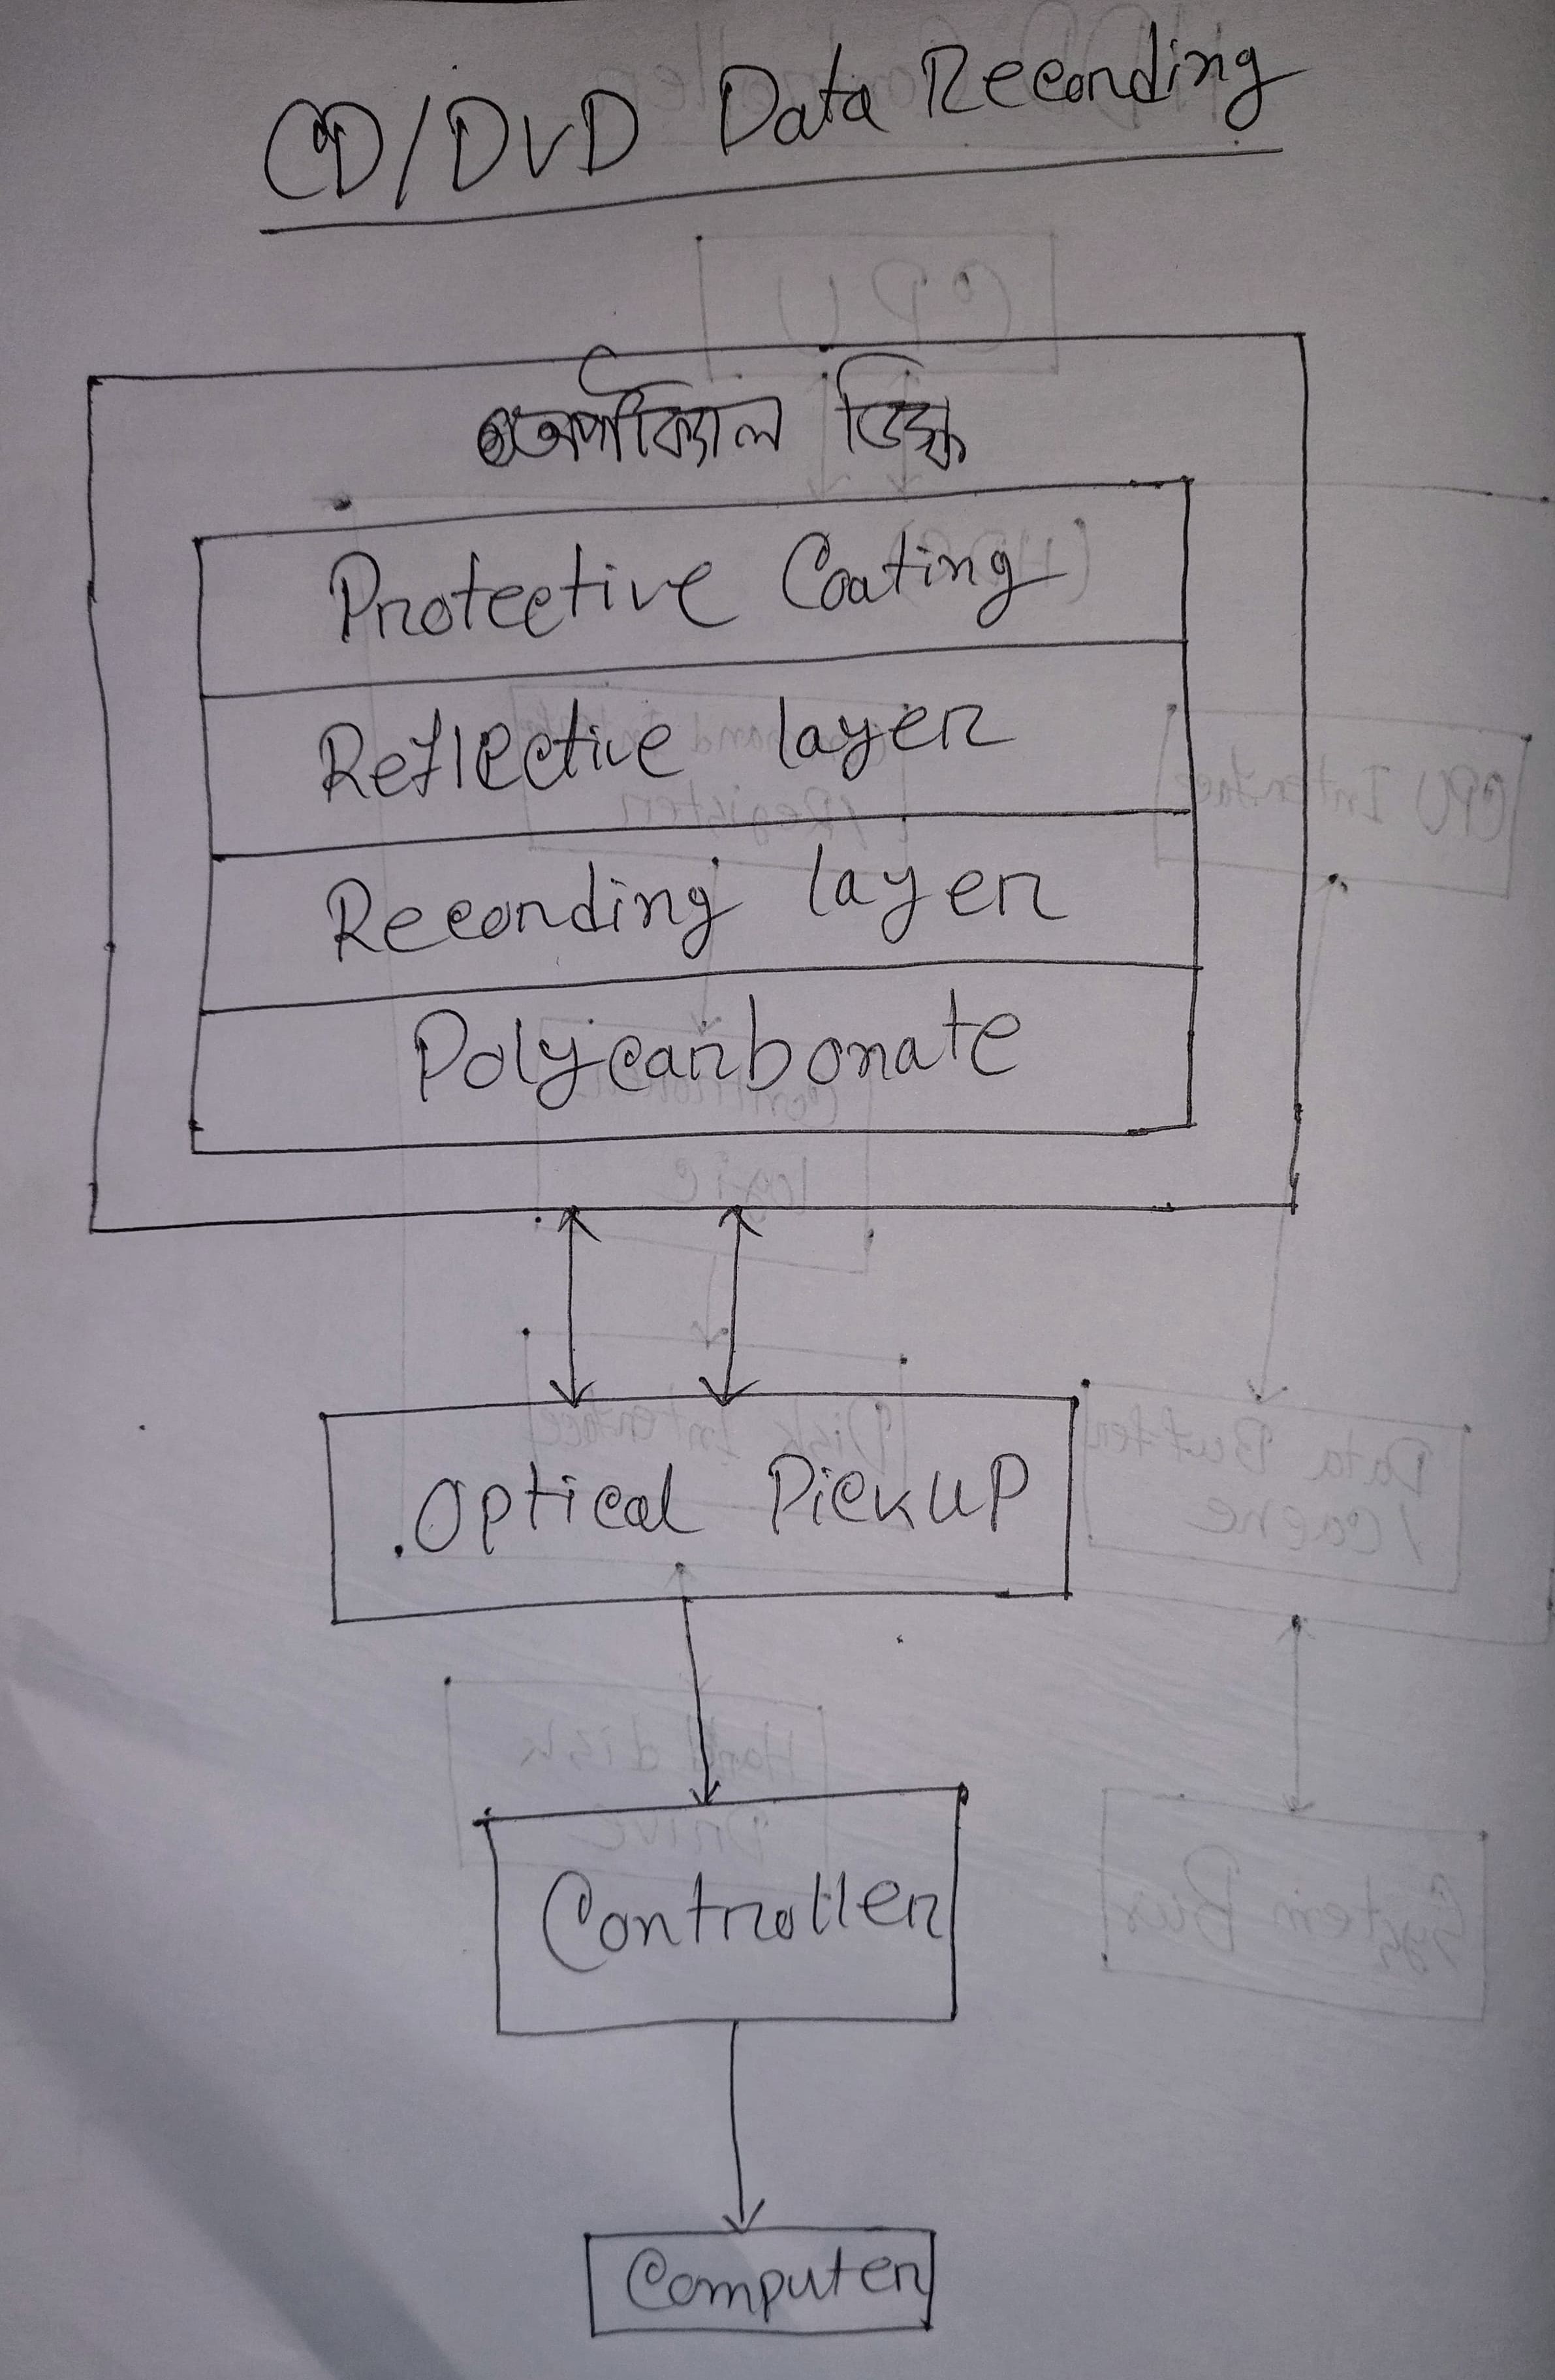 CD/DVD Data Recording
অপটিক্যাল ডিস্ক
Protective Coating
Reflective layer
Recording layer
Polycarbonate
Optical Pickup
Controller
Computer